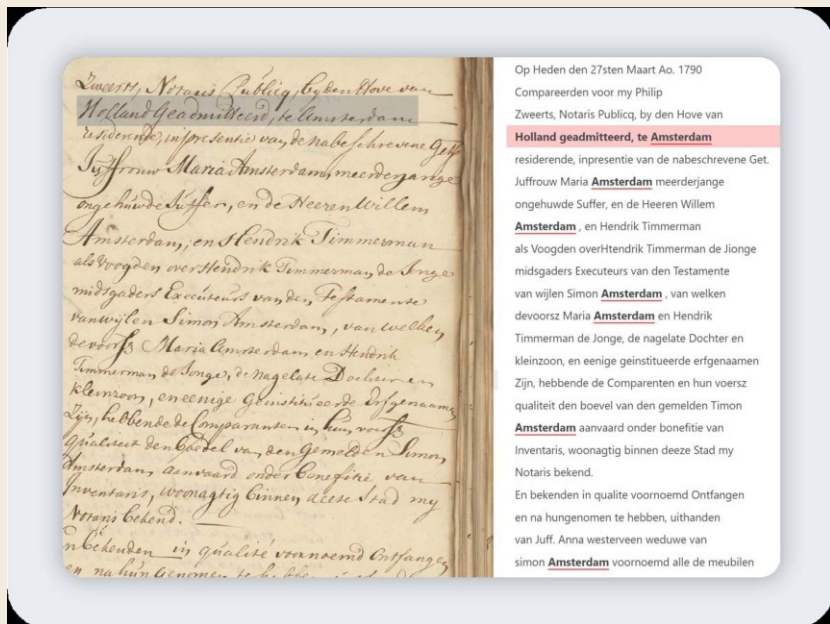 Zweerts, Notaris Publicq, by den Hove van
Holland Geadmitteerd, te Amsterdam
residerende, in presentie van de nabeschrevene Get
Juffrouw Maria Amsterdam, meerderjange
ongehuwde Juffer, en de Heeren Willem
Amsterdam, en Hendrik Timmerman
als Voogden over Hendrik Timmerman de Jonge
midsgaders Executeurs van den Testamente
van wylen Simon Amsterdam, van welken
de voorsz Maria Amsterdam en Hendrik
Timmerman de Jonge, de nagelate Dochter en
kleinzoon, en eenige Geinstitueerde Erfgenaamen
Zyn, hebbende de Comparanten in hun voorsz
qualiteit den Boedel van den Gemelden Simon
Amsterdam aanvaard onder Benefitie van
Inventaris, woonagtig binnen deese Stad my
Notaris bekend.
n bekenden in qualité voornoemd Ontfangen
en na hun Genomen te hebben
Op Heden den 27sten Maart Ao. 1790
Compareerden voor my Philip
Zweerts, Notaris Publicq, by den Hove van
Holland geadmitteerd, te Amsterdam
residerende, inpresentie van de nabeschrevene Get.
Juffrouw Maria Amsterdam meerderjange
ongehuwde Suffer, en de Heeren Willem
Amsterdam , en Hendrik Timmerman
als Voogden overHtendrik Timmerman de Jionge
midsgaders Executeurs van den Testamente
van wijlen Simon Amsterdam , van welken
devoorsz Maria Amsterdam en Hendrik
Timmerman de Jonge, de nagelate Dochter en
kleinzoon, en eenige geinstitueerde erfgenaamen
Zijn, hebbende de Comparenten en hun voersz
qualiteit den boevel van den gemelden Timon
Amsterdam aanvaard onder bonefitie van
Inventaris, woonagtig binnen deeze Stad my
Notaris bekend.
En bekenden in qualite voornoemd Ontfangen
en na hungenomen te hebben, uithanden
van Juff. Anna westerveen weduwe van
simon Amsterdam voornoemd alle de meubilen